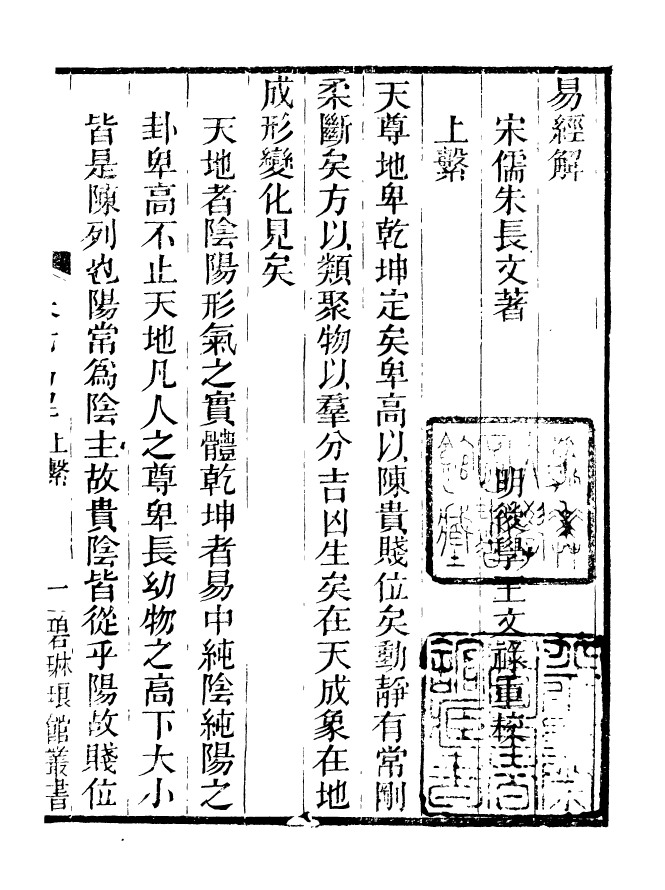 易經解
宋儒朱長文著
明後學王文祿重校
上繫
天尊地卑乾坤定矣卑高以陳貴賤位矣動靜有常剛
柔斷矣方以類聚物以羣分吉凶生矣在天成象在地
成形變化見矣
天地者陰陽形氣之實體乾坤者易中純陰純陽之
卦卑高不止天地凡人之尊卑長幼物之高下大小
皆是陳列也陽常爲陰主故貴陰皆從乎陽故賤位
上繫
一
碧琳琅館叢書